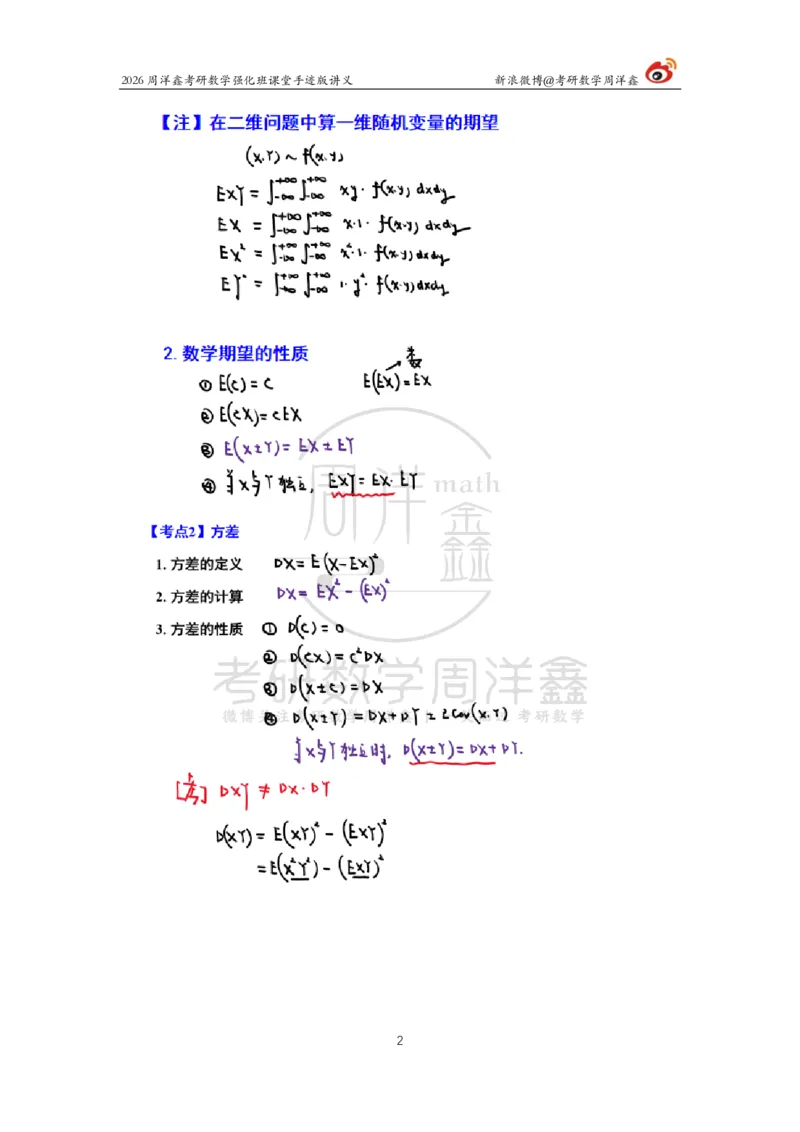 2026 周洋鑫考研数学强化班课堂手迹版讲义 新浪微博@考研数学周洋鑫
【注】在二维问题中算一维随机变量的期望
(X,Y) ~ f(x,y)
EXY = ∫_{-∞}^{+∞} ∫_{-∞}^{+∞} xy · f(x,y) dxdy
EX = ∫_{-∞}^{+∞} ∫_{-∞}^{+∞} x·1· f(x,y) dxdy
EX² = ∫_{-∞}^{+∞} ∫_{-∞}^{+∞} x²·1· f(x,y) dxdy
EY² = ∫_{-∞}^{+∞} ∫_{-∞}^{+∞} 1·y²· f(x,y) dxdy
2. 数学期望的性质
① E(C) = C E(EX) = EX 常数
② E(CX) = CEX
③ E(X±Y) = EX ± EY
④ 若X与Y独立, EXY = EX·EY
周洋鑫 math
【考点2】方差
1. 方差的定义 DX = E(X-EX)²
2. 方差的计算 DX = EX² - (EX)²
3. 方差的性质 ① D(C) = 0
② D(CX) = C²DX
③ D(X±C) = DX
④ D(X±Y) = DX + DY ± 2Cov(X,Y)
考研数学周洋鑫
若X与Y独立时, D(X±Y) = DX + DY.
DXY ≠ DX·DY
D(XY) = E(XY)² - (EXY)²
= E(X²Y²) - (EXY)²
2